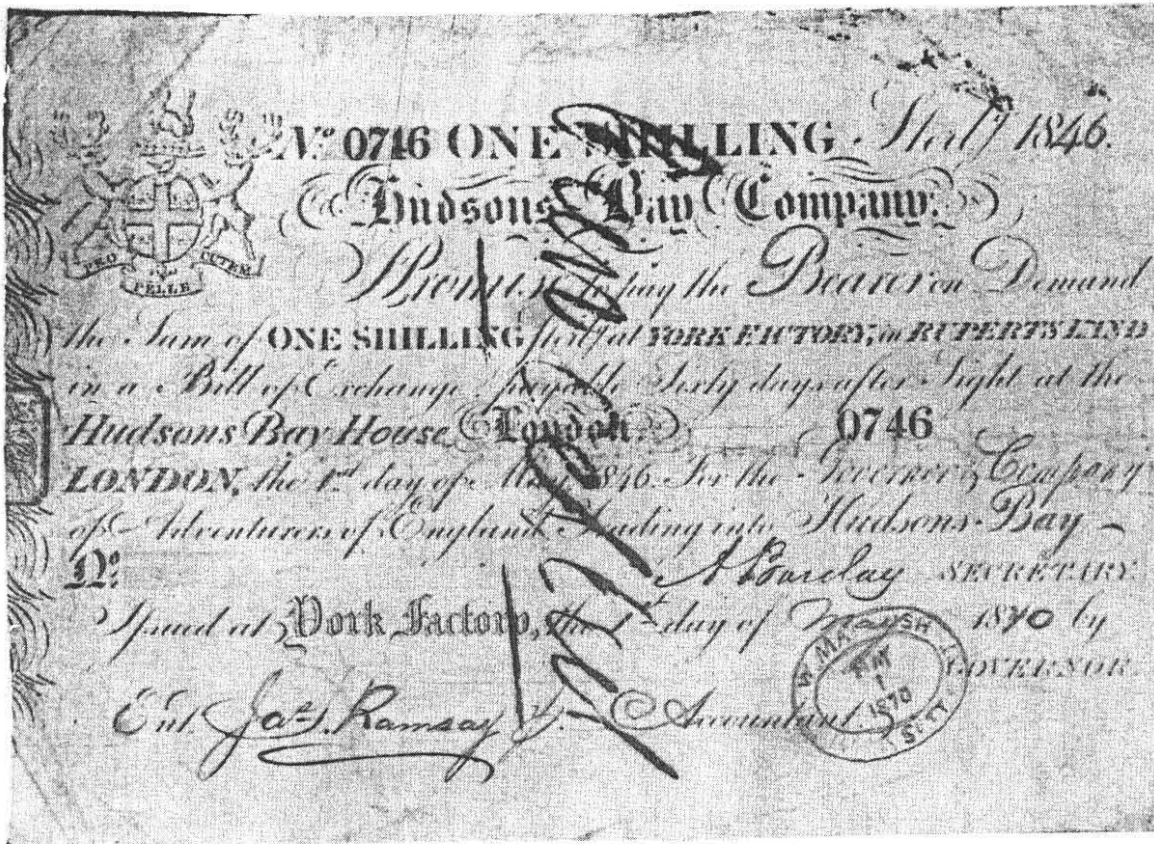 No. 0746 ONE SHILLING Sterlg. 1846.
Hudsons Bay Company.
PRO PELLE CUTEM
I Promise to pay the Bearer on Demand
the Sum of ONE SHILLING Sterlg. at YORK FACTORY, in RUPERTS LAND
in a Bill of Exchange payable Sixty days after Sight at the
Hudsons Bay House London. 0746
LONDON, the 1st day of May 1846. For the Governor & Company
of Adventurers of England Trading into Hudsons Bay
No. A Barclay SECRETARY.
Issued at York Factory, the 1st day of 1870 by
GOVERNOR.
Ent. Jas. Ramsay Accountant.
W. MARSH
1
1870